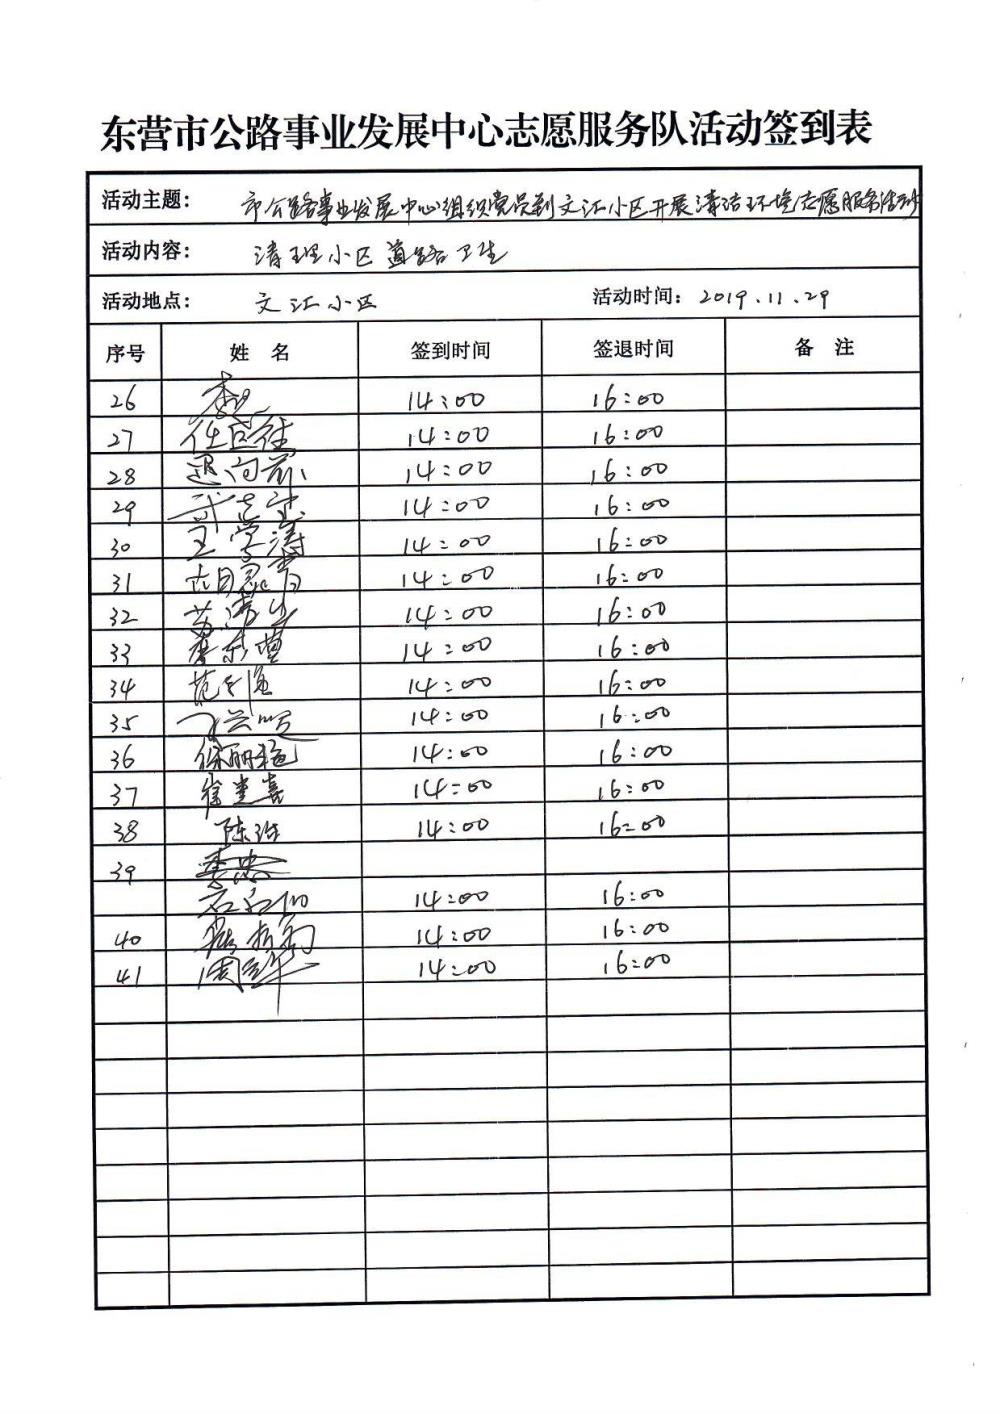 东营市公路事业发展中心志愿服务队活动签到表
活动主题： 市公路事业发展中心组织党员到文汇小区开展清洁环境志愿服务活动
活动内容： 清理小区道路卫生
活动地点： 文汇小区 活动时间：2019.11.29
序号 姓 名 签到时间 签退时间 备 注
26 14:00 16:00
27 14:00 16:00
28 14:00 16:00
29 14:00 16:00
30 王学涛 14:00 16:00
31 14:00 16:00
32 14:00 16:00
33 14:00 16:00
34 14:00 16:00
35 14:00 16:00
36 徐丽艳 14:00 16:00
37 14:00 16:00
38 14:00 16:00
39
14:00 16:00
40 14:00 16:00
41 14:00 16:00